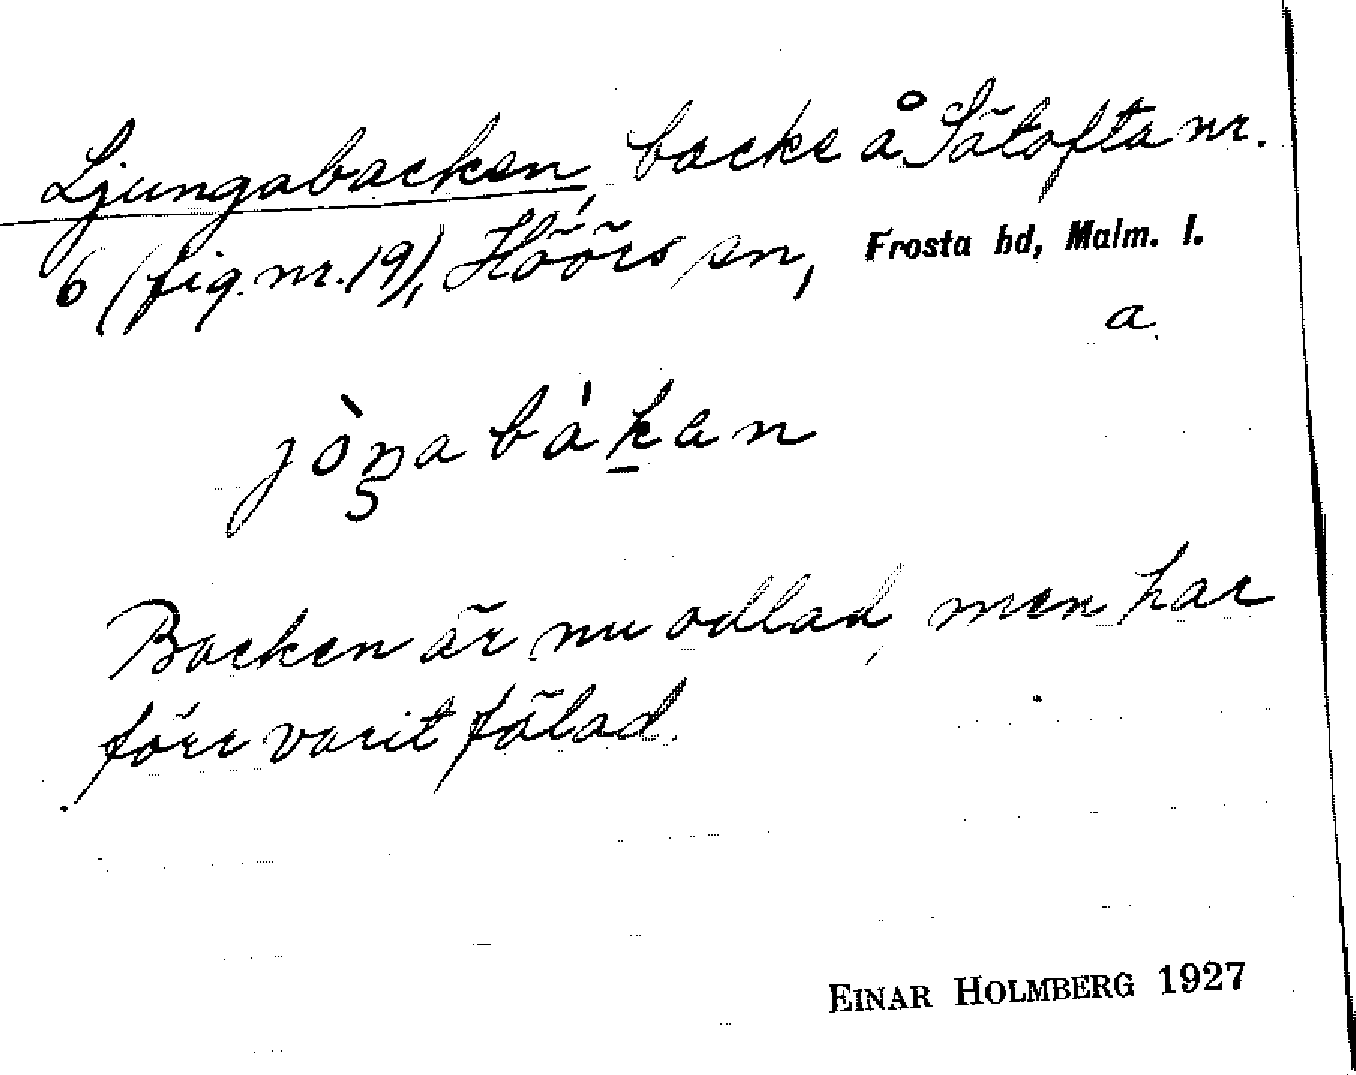 Ljungabacken, backe å Sätofta nr.
6 (fig. nr. 19), Höörs sn, Frosta hd, Malm. l.
a.
jòŋabákan
Backen är nu odlad, men har
förr varit fälad.
EINAR HOLMBERG 1927